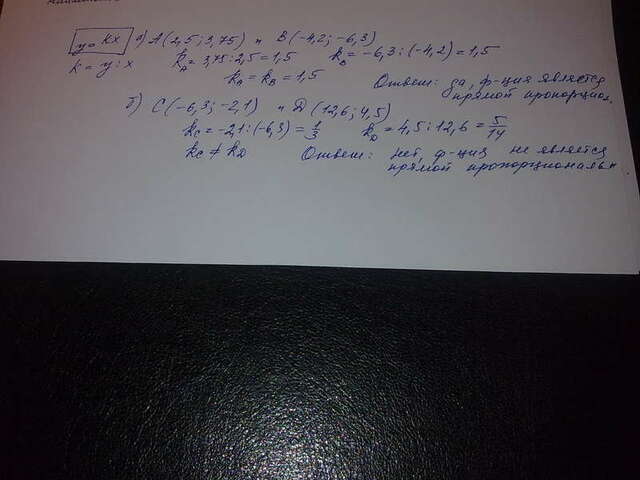 y = kx а) A(2,5; 3,75) и B(-4,2; -6,3)
k = y : x kA = 3,75 : 2,5 = 1,5 kB = -6,3 : (-4,2) = 1,5
kA = kB = 1,5 Ответ: да, ф-ция является
прямой пропорцион.
б) C(-6,3; -2,1) и D(12,6; 4,5)
kC = -2,1 : (-6,3) = 1/3 kD = 4,5 : 12,6 = 5/14
kC ≠ kD Ответ: нет, ф-ция не является
прямой пропорциональн